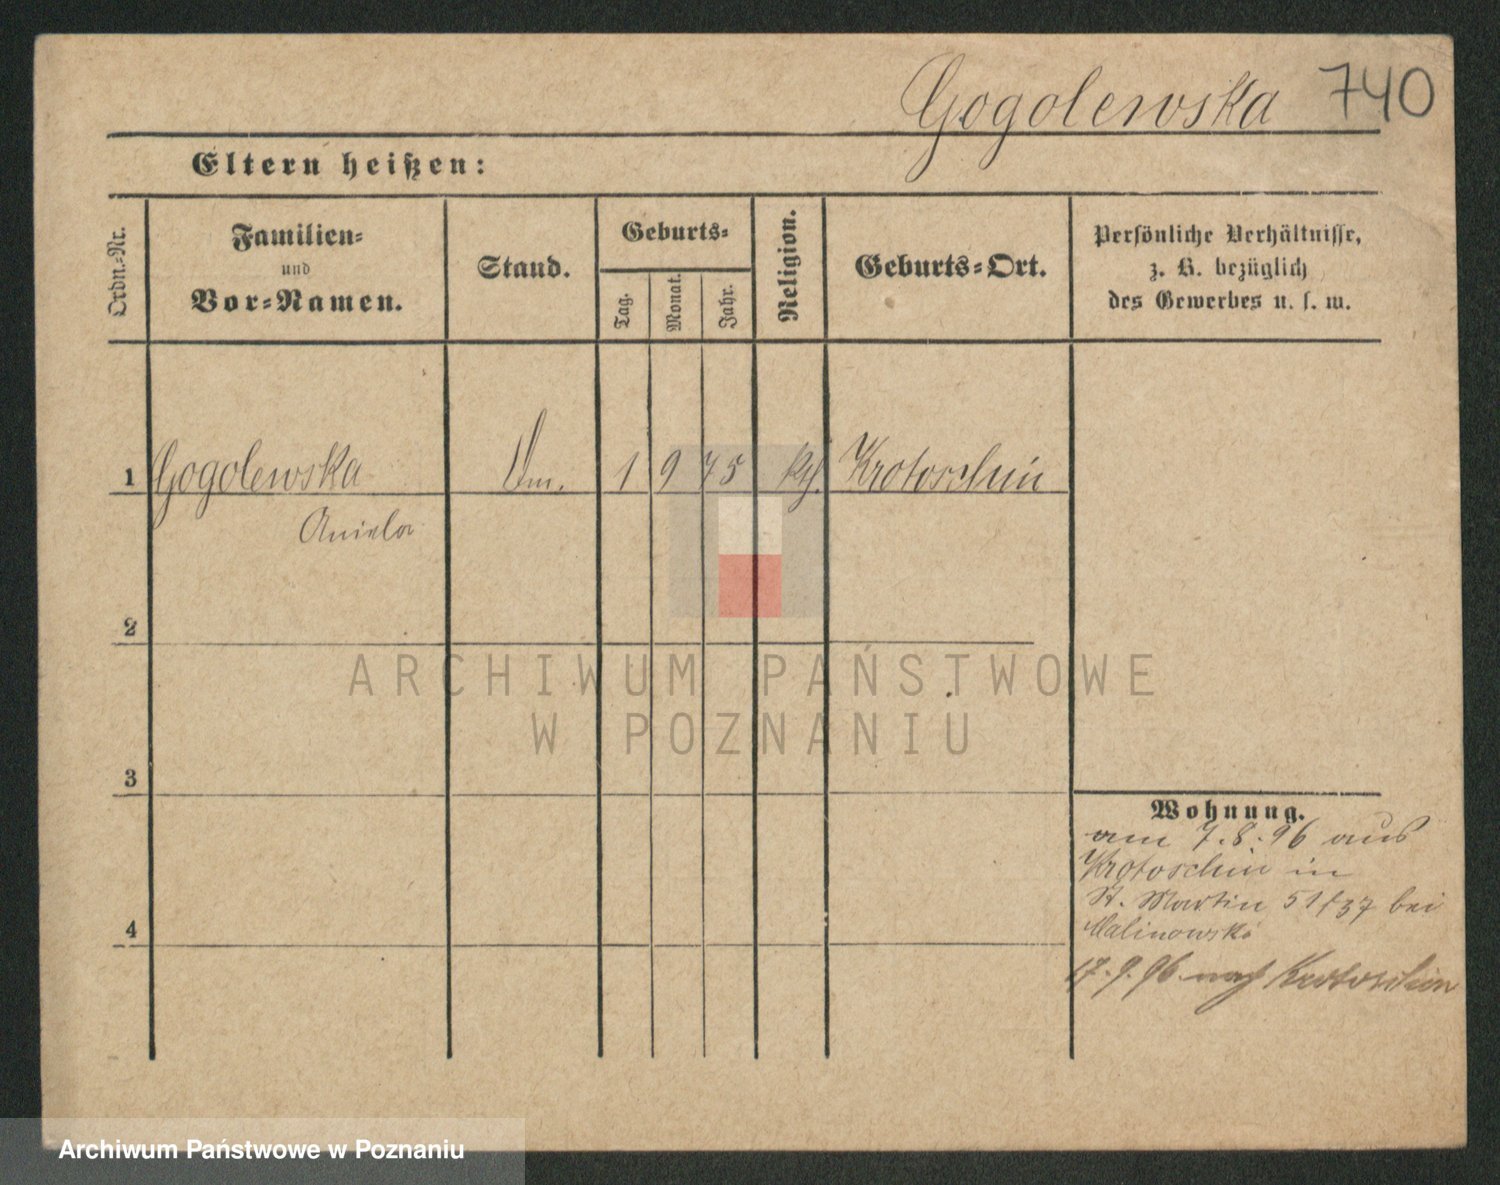 Gogolewska 740
Eltern heißen:
Ordn.-Nr.
Familien-
und
Vor-Namen.
Stand.
Geburts-
Tag.
Monat.
Jahr.
Religion.
Geburts-Ort.
Persönliche Verhältnisse,
z. B. bezüglich
des Gewerbes u. s. w.
1 Gogolewska 1 9 75 kth. Krotoschin
Aniela
2
ARCHIWUM PAŃSTWOWE
W POZNANIU
3
Wohnung.
am 7.8.96 aus
Krotoschin in
St. Martin 51/37 bei
Malinowski
4
17.9.96 nach Krotoschin
Archiwum Państwowe w Poznaniu